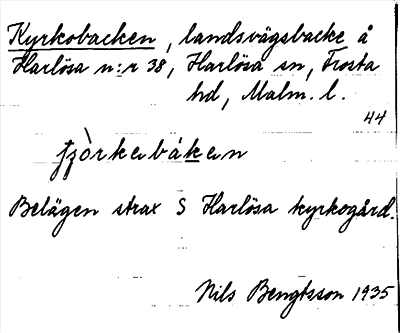 Kyrkobacken, landsvägsbacke å
Harlösa n:r 38, Harlösa sn, Frosta
hd, Malm. l.
44
Belägen strax S Harlösa kyrkogård.
Nils Bengtsson 1935